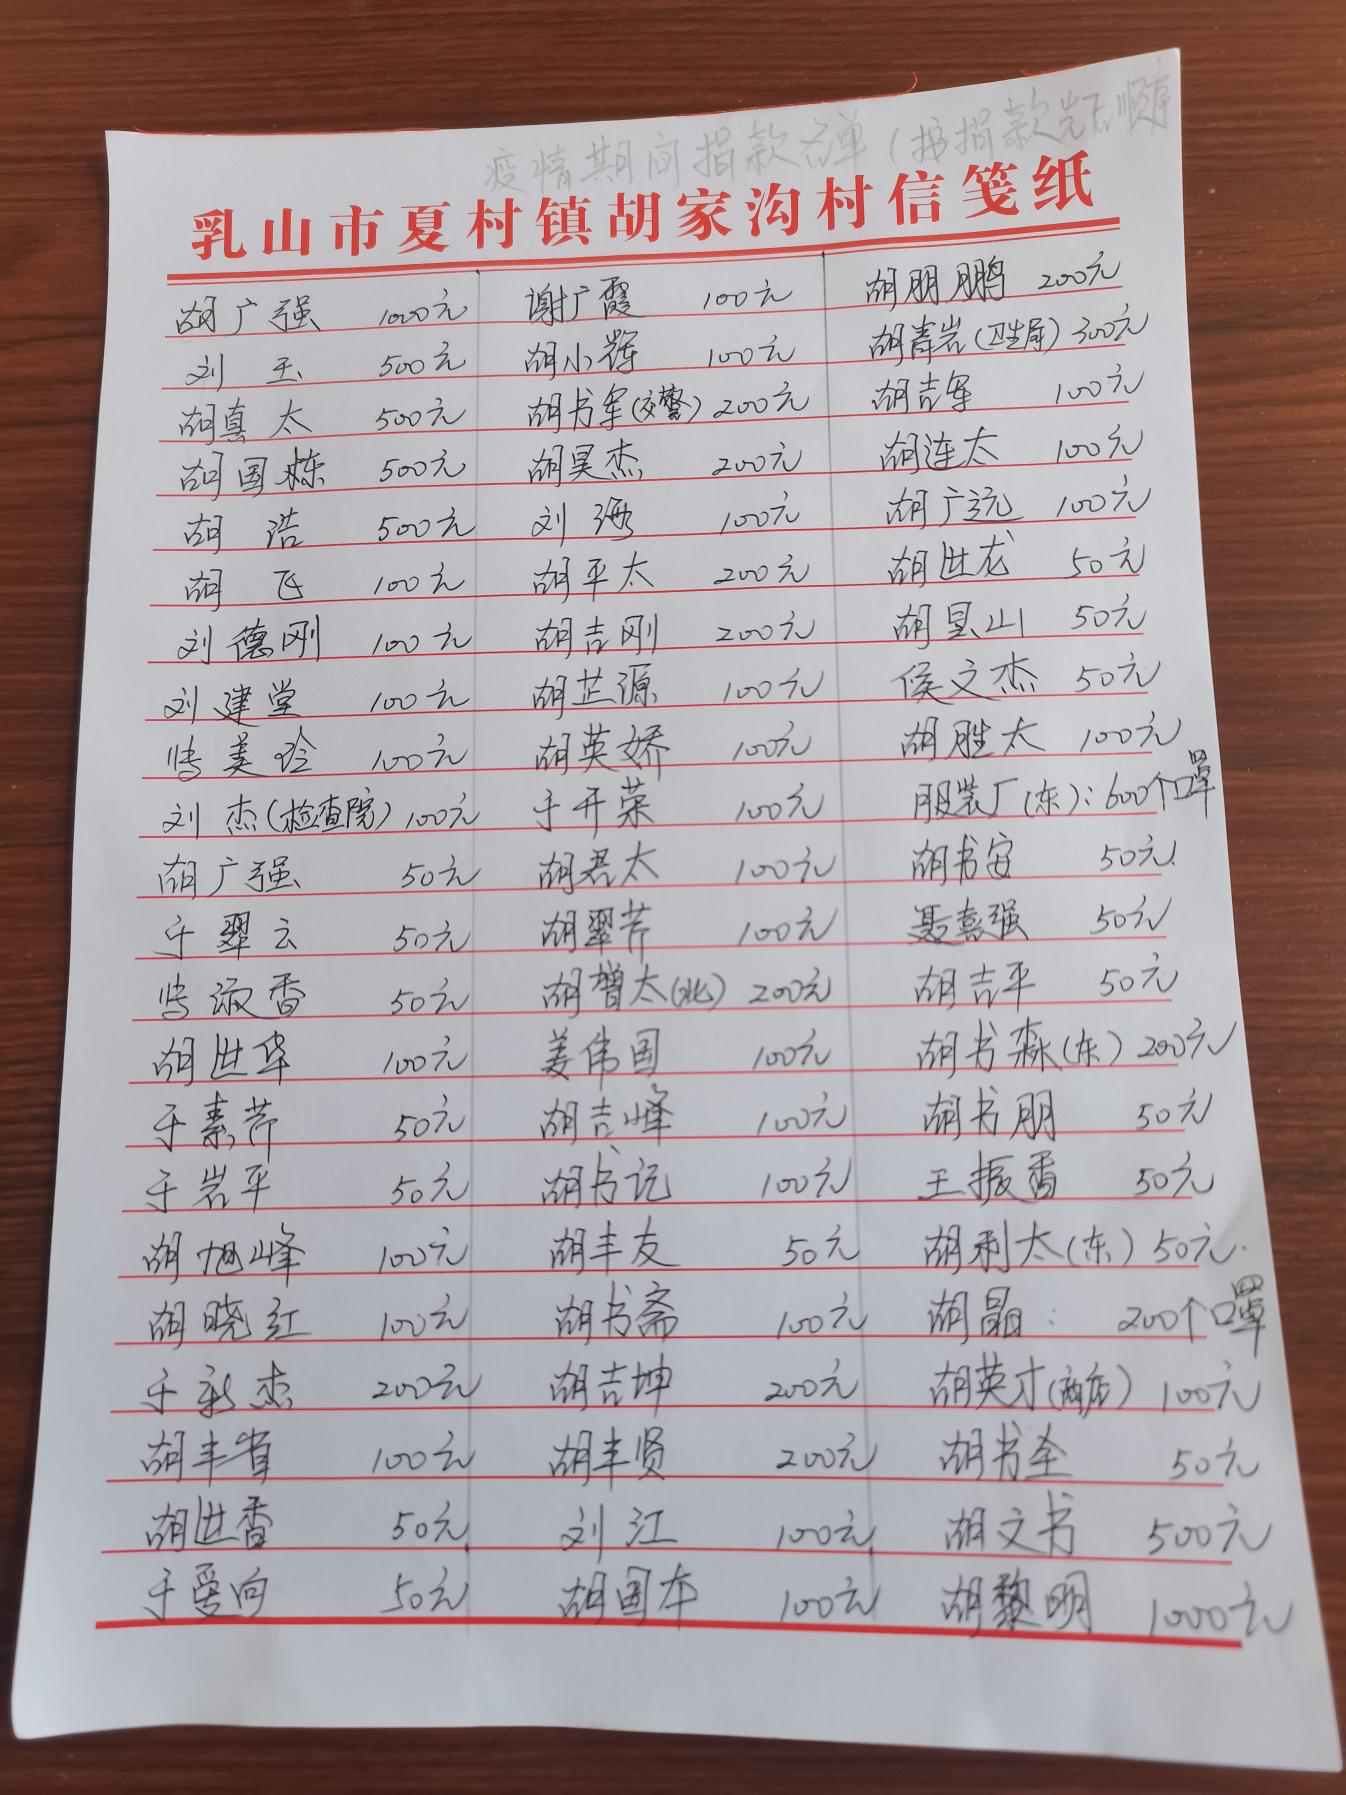 疫情期间捐款名单(按捐款先后顺序
乳山市夏村镇胡家沟村信笺纸
胡广强 1000元 谢广霞 100元 胡朋鹏 200元
刘玉 500元 胡小辉 100元 胡青岩(卫生局) 300元
胡真太 500元 胡书军(交警) 200元 胡吉军 100元
胡国栋 500元 胡昊杰 200元 胡连太 100元
胡浩 500元 刘海 100元 胡广远 100元
胡飞 100元 胡平太 200元 胡世龙 50元
刘德刚 100元 胡吉刚 200元 胡昆山 50元
刘建堂 100元 胡芷源 100元 侯文杰 50元
美玲 100元 胡英娇 100元 胡胜太 100元
刘杰(检查院) 100元 于开荣 100元 服装厂(东):600个口罩
胡广强 50元 胡君太 100元 胡书安 50元
于翠云 50元 胡翠芹 100元 聂喜强 50元
淑香 50元 胡增太(北) 200元 胡吉平 50元
胡世华 100元 姜伟国 100元 胡书森(东) 200元
于素芹 50元 胡吉峰 100元 胡书朋 50元
于岩平 50元 胡书记 100元 王振香 50元
胡旭峰 100元 胡丰友 50元 胡利太(东) 50元
胡晓红 100元 胡书斋 100元 胡晶: 200个口罩
于新杰 200元 胡吉坤 200元 胡英才(商店) 100元
胡丰省 100元 胡丰贤 200元 胡书圣 50元
胡世香 50元 刘江 100元 胡文书 500元
于爱向 50元 胡国本 100元 胡黎明 1000元